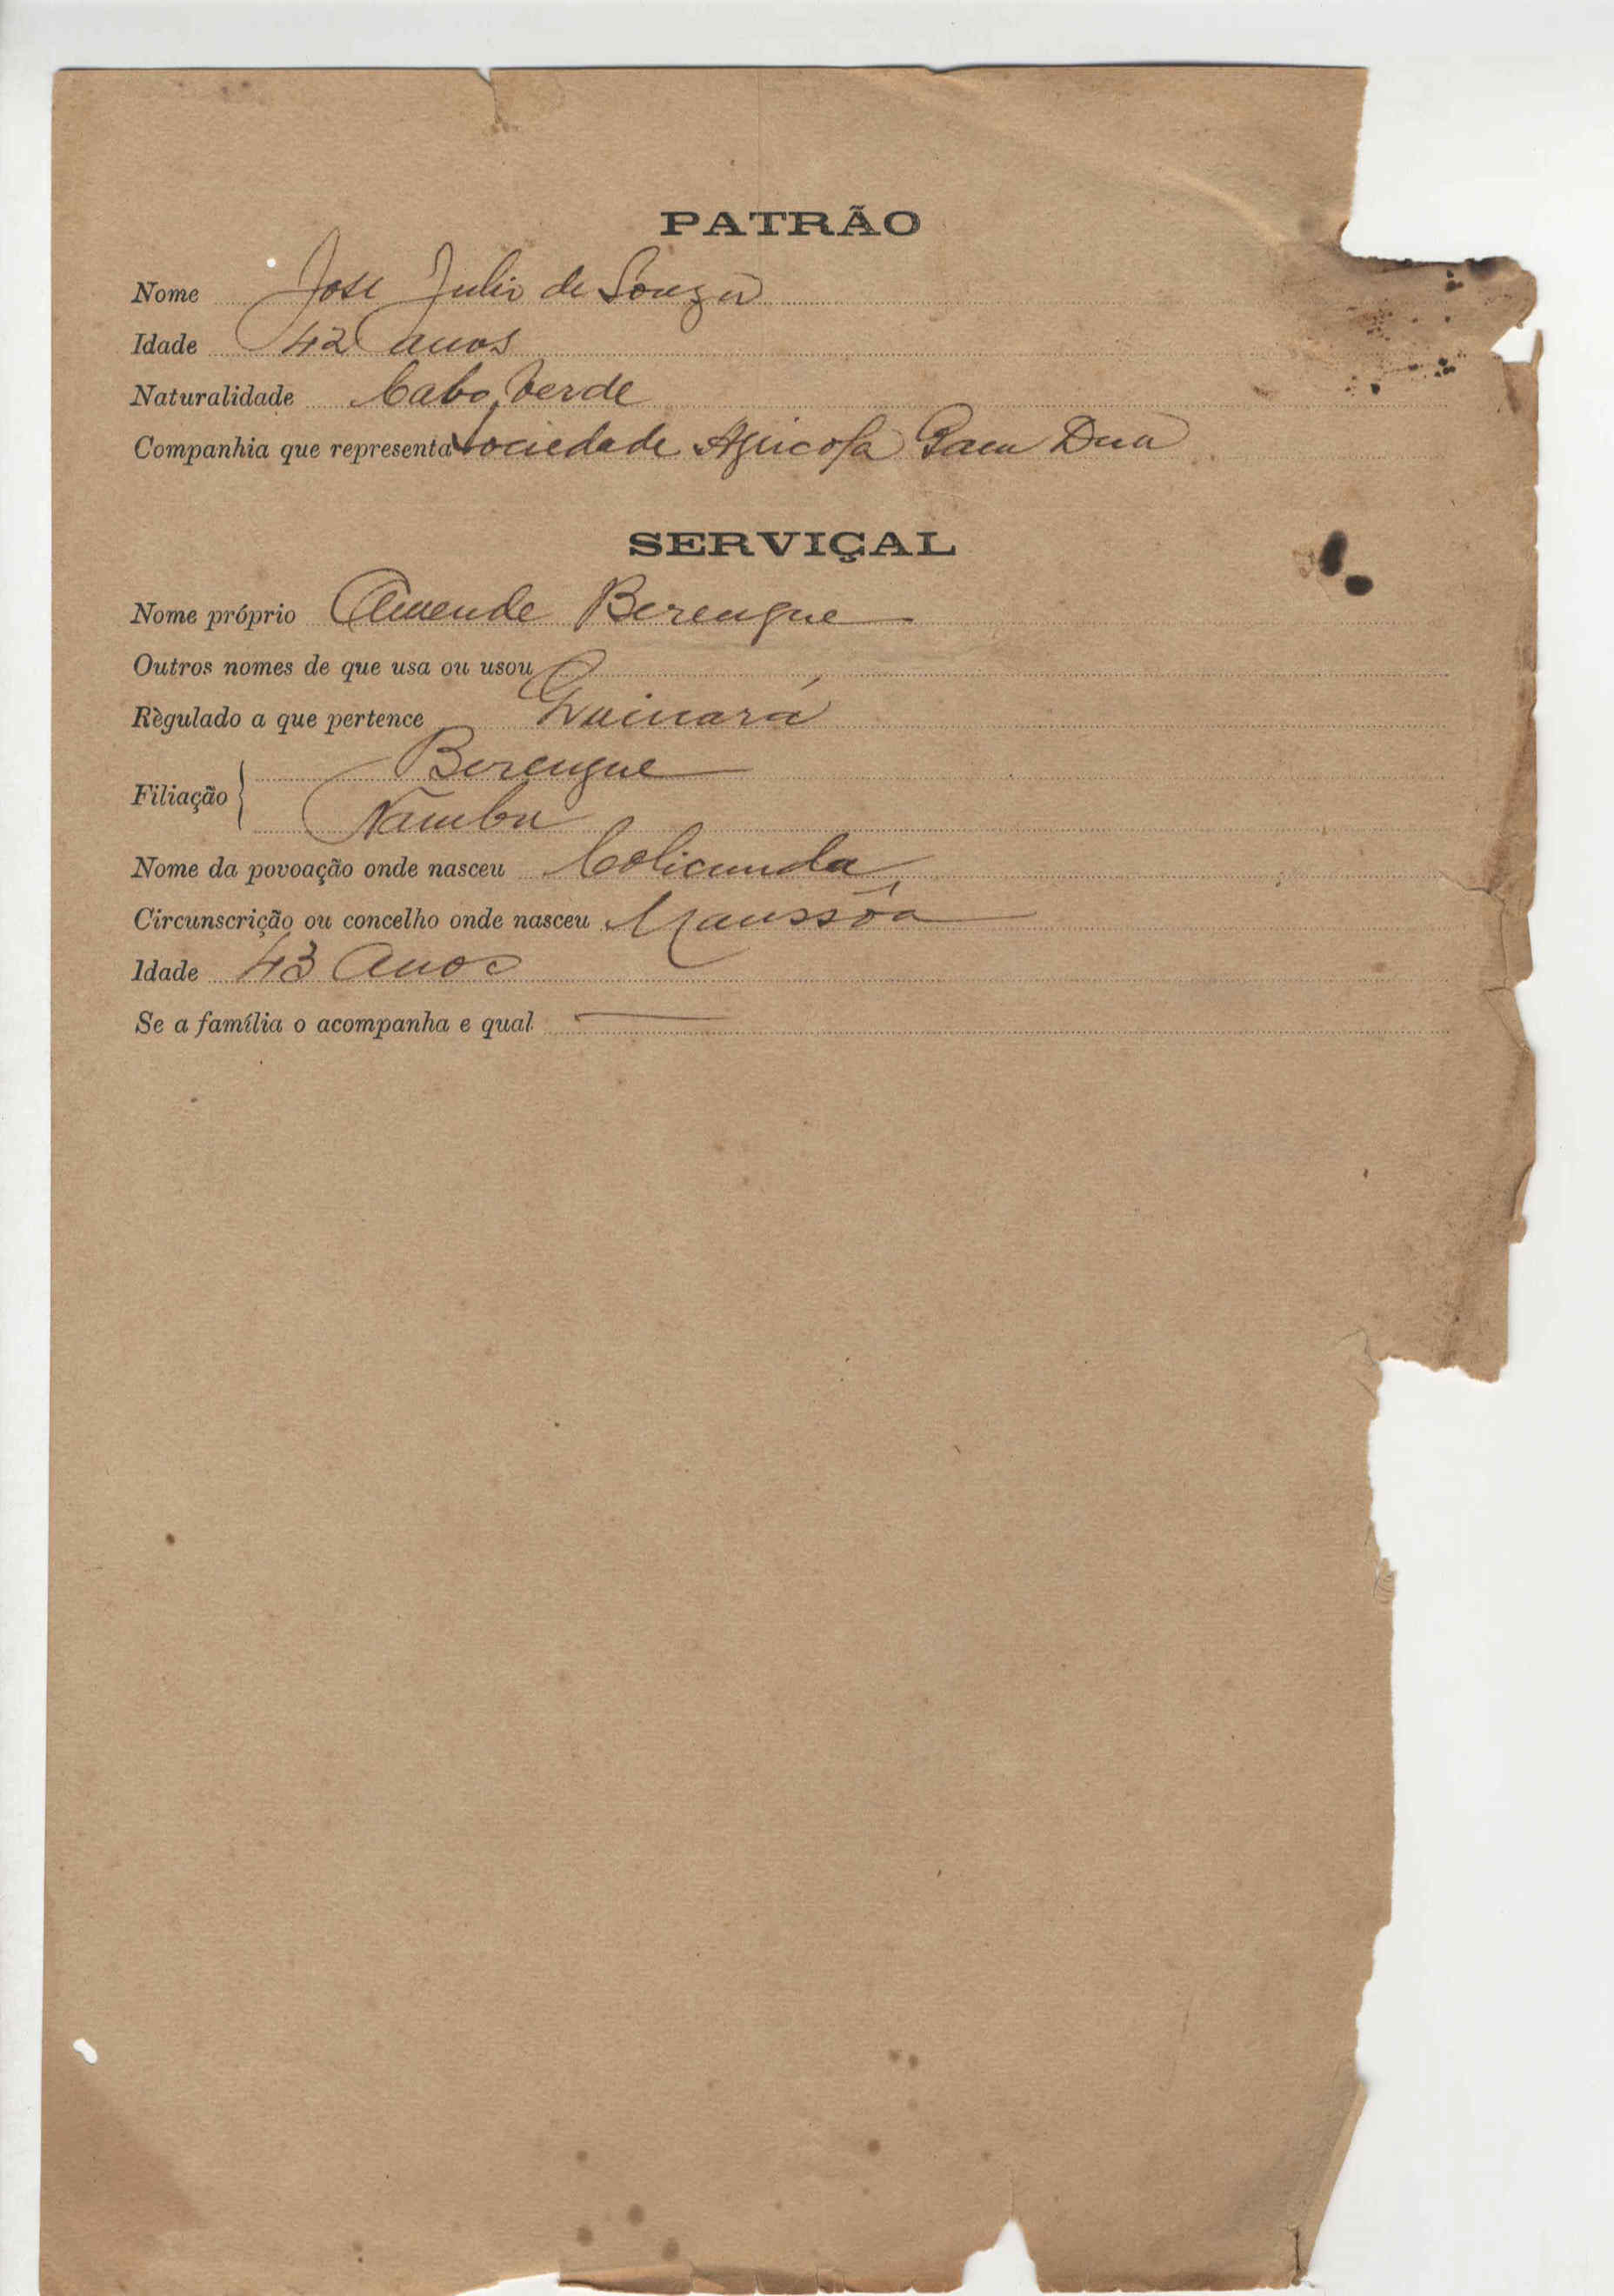 PATRÃO
Nome José Julio de Souza
Idade 42 anos
Naturalidade Cabo Verde
Companhia que representa Sociedade Agricola Gam Dua
SERVIÇAL
Nome próprio Amende Berengue
Outros nomes de que usa ou usou
Règulado a que pertence Guinará
Filiação Berengue
Nambu
Nome da povoação onde nasceu Colicunda
Circunscrição ou concelho onde nasceu Manssôa
Idade 43 anos
Se a família o acompanha e qual —